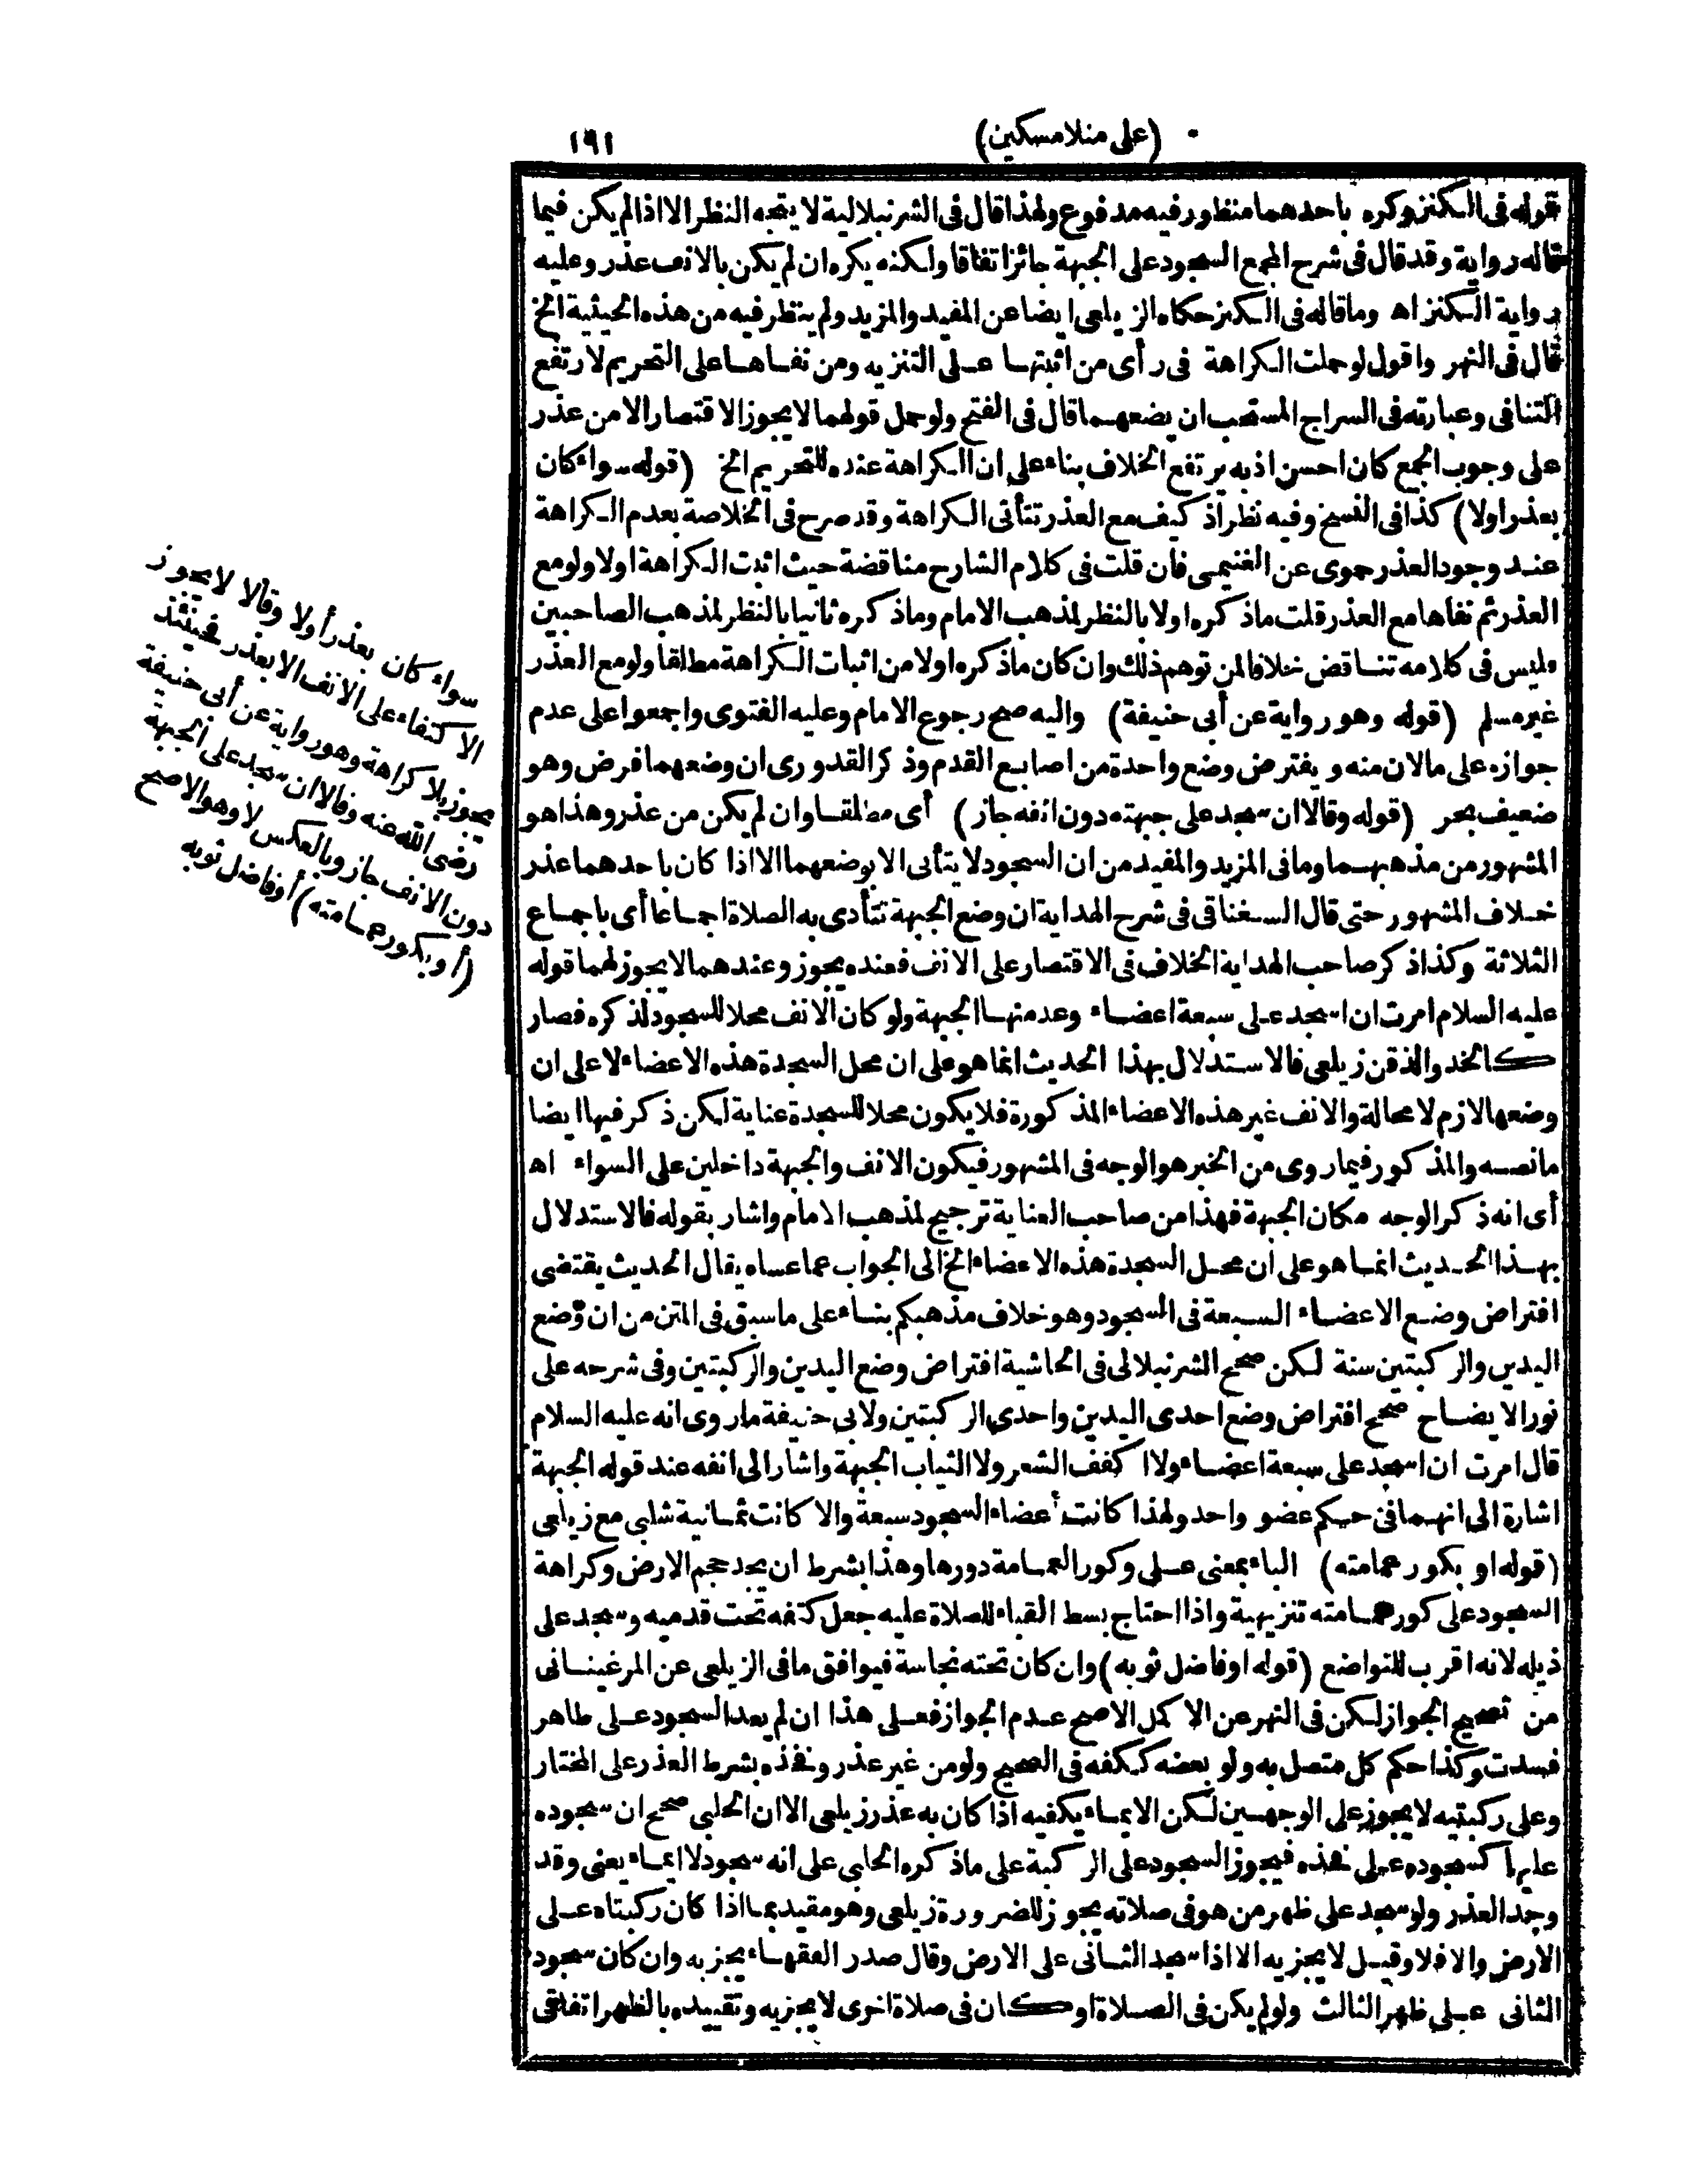 (على منلا مسكين) ١٩١
قوله فى الكنز وكره باحدهما منظور فيه مدفوع ولهذا قال فى الشرنبلالية لا يتجه النظر الا اذا لم يكن فيما
قاله رواية وقد قال فى شرح المجمع السجود على الجبهة جائز اتفاقا ولكنه يكره ان لم يكن بالانف عذر وعليه
رواية الكنز اه وما قاله فى الكنز حكاه الزيلعى ايضا عن المفيد والمزيد ولم ينظر فيه من هذه الحيثية الخ
قال فى النهر واقول لو حملت الكراهة فى رأى من اثبتها على التنزيه ومن نفاها على التحريم لارتفع
التنافى وعبارته فى السراج المستحب ان يضعهما قال فى الفتح ولو حمل قولهما لا يجوز الاقتصار الا من عذر
على وجوب الجمع كان احسن اذ به يرتفع الخلاف بناء على ان الكراهة عنده للتحريم الخ (قوله سواء كان
بعذر اولا) كذا فى النسخ وفيه نظر اذ كيف مع العذر تتأتى الكراهة وقد صرح فى الخلاصة بعدم الكراهة
عند وجود العذر حموى عن الغنيمى فان قلت فى كلام الشارح مناقضة حيث اثبت الكراهة اولا ولو مع
العذر ثم نفاها مع العذر قلت ما ذكره اولا بالنظر لمذهب الامام وما ذكره ثانيا بالنظر لمذهب الصاحبين
فليس فى كلامه تناقض خلافا لمن توهم ذلك وان كان ما ذكره اولا من اثبات الكراهة مطلقا ولو مع العذر
غير مسلم (قوله وهو رواية عن أبى حنيفة) واليه صح رجوع الامام وعليه الفتوى واجمعوا على عدم
جوازه على ما لان منه ويفترض وضع واحدة من اصابع القدم وذكر القدورى ان وضعهما فرض وهو
ضعيف بحر (قوله وقالا ان سجد على جبهته دون انفه جاز) أى مطلقا وان لم يكن من عذر وهذا هو
المشهور من مذهبهما وما فى المزيد والمفيد من ان السجود لا يتأتى الا بوضعهما الا اذا كان باحدهما عذر
خلاف المشهور حتى قال السغناقى فى شرح الهداية ان وضع الجبهة تتأدى به الصلاة اجماعا أى باجماع
الثلاثة وكذا ذكر صاحب الهداية الخلاف فى الاقتصار على الانف فعنده يجوز وعندهما لا يجوز لهما قوله
عليه السلام امرت ان اسجد على سبعة اعضاء وعد منها الجبهة ولو كان الانف محلا للسجود لذكره فصار
كالخد والذقن زيلعى فالاستدلال بهذا الحديث انما هو على ان محل السجدة هذه الاعضاء لا على ان
وضعها لازم لا محالة والانف غير هذه الاعضاء المذكورة فلا يكون محلا للسجدة عناية لكن ذكر فيها ايضا
ما نصه والمذكور فيما روى من الخبر هو الوجه فى المشهور فيكون الانف والجبهة داخلين على السواء اه
أى انه ذكر الوجه مكان الجبهة فهذا من صاحب العناية ترجيح لمذهب الامام واشار بقوله فالاستدلال
بهذا الحديث انما هو على ان محل السجدة هذه الاعضاء الخ الى الجواب عما عساه يقال الحديث يقتضى
افتراض وضع الاعضاء السبعة فى السجود وهو خلاف مذهبكم بناء على ما سبق فى المتن من ان وضع
اليدين والركبتين سنة لكن صحح الشرنبلالى فى الحاشية افتراض وضع اليدين والركبتين وفى شرحه على
نور الايضاح صحح افتراض وضع احدى اليدين واحدى الركبتين ولابى حنيفة ما روى انه عليه السلام
قال امرت ان اسجد على سبعة اعضاء ولا اكفف الشعر ولا الثياب الجبهة واشار الى انفه عند قوله الجبهة
اشارة الى انهما فى حكم عضو واحد ولهذا كانت أعضاء السجود سبعة والا كانت ثمانية شلبى مع زيلعى
(قوله او بكور عمامته) الباء بمعنى على وكور العمامة دورها وهذا بشرط ان يجد حجم الارض وكراهة
السجود على كور عمامته تنزيهية واذا احتاج بسط القباء للصلاة عليه جعل كتفه تحت قدميه وسجد على
ذيله لانه اقرب للتواضع (قوله او فاضل ثوبه) وان كان تحته نجاسة فيوافق ما فى الزيلعى عن المرغينانى
من تصحيح الجواز لكن فى النهر عن الاكمل الاصح عدم الجواز فعلى هذا ان لم يعد السجود على طاهر
فسدت وكذا حكم كل متصل به ولو بعضه ككفه فى الصحيح ولو من غير عذر وفخذه بشرط العذر على المختار
وعلى ركبتيه لا يجوز على الوجهين لكن الايماء يكفيه اذا كان به عذر زيلعى الا ان الحلبى صحح ان سجوده
عليها كسجوده على فخذه فيجوز السجود على الركبة على ما ذكره الحلبى على انه سجود لا ايماء يعنى وقد
وجد العذر ولو سجد على ظهر من هو فى صلاته يجوز للضرورة زيلعى وهو مقيد بما اذا كان ركبتاه على
الارض والا فلا وقيل لا يجزيه الا اذا سجد الثانى على الارض وقال صدر الفقهاء يجزيه وان كان سجود
الثانى على ظهر الثالث ولو لم يكن فى الصلاة او كان فى صلاة اخرى لا يجزيه وتقييده بالظهر اتفاقى
سواء كان بعذر أولا وقالا لا يجوز
الاكتفاء على الانف الا بعذر فحينئذ
يجوز بلا كراهة وهو رواية عن أبى حنيفة
رضى الله عنه وقالا ان سجد على الجبهة
دون الانف جاز وبالعكس لا وهو الاصح
(أو بكور عمامته) أو فاضل ثوبه